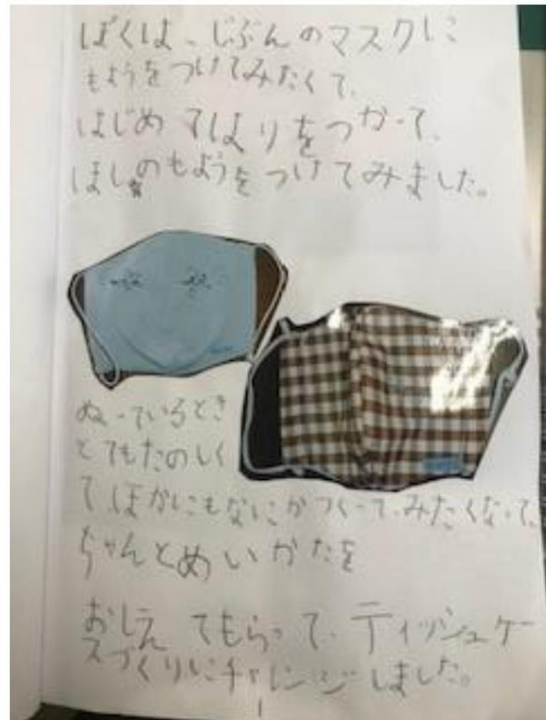 ぼくは、じぶんのマスクに
もようをつけてみたくて、
はじめてはりをつかって、
ほしのもようをつけてみました。
ぬっているとき
とてもたのしく
てほかにもなにかつくってみたくなって、
ちゃんとぬいかたを
おしえてもらって、ティッシュケー
スづくりにチャレンジしました。
1